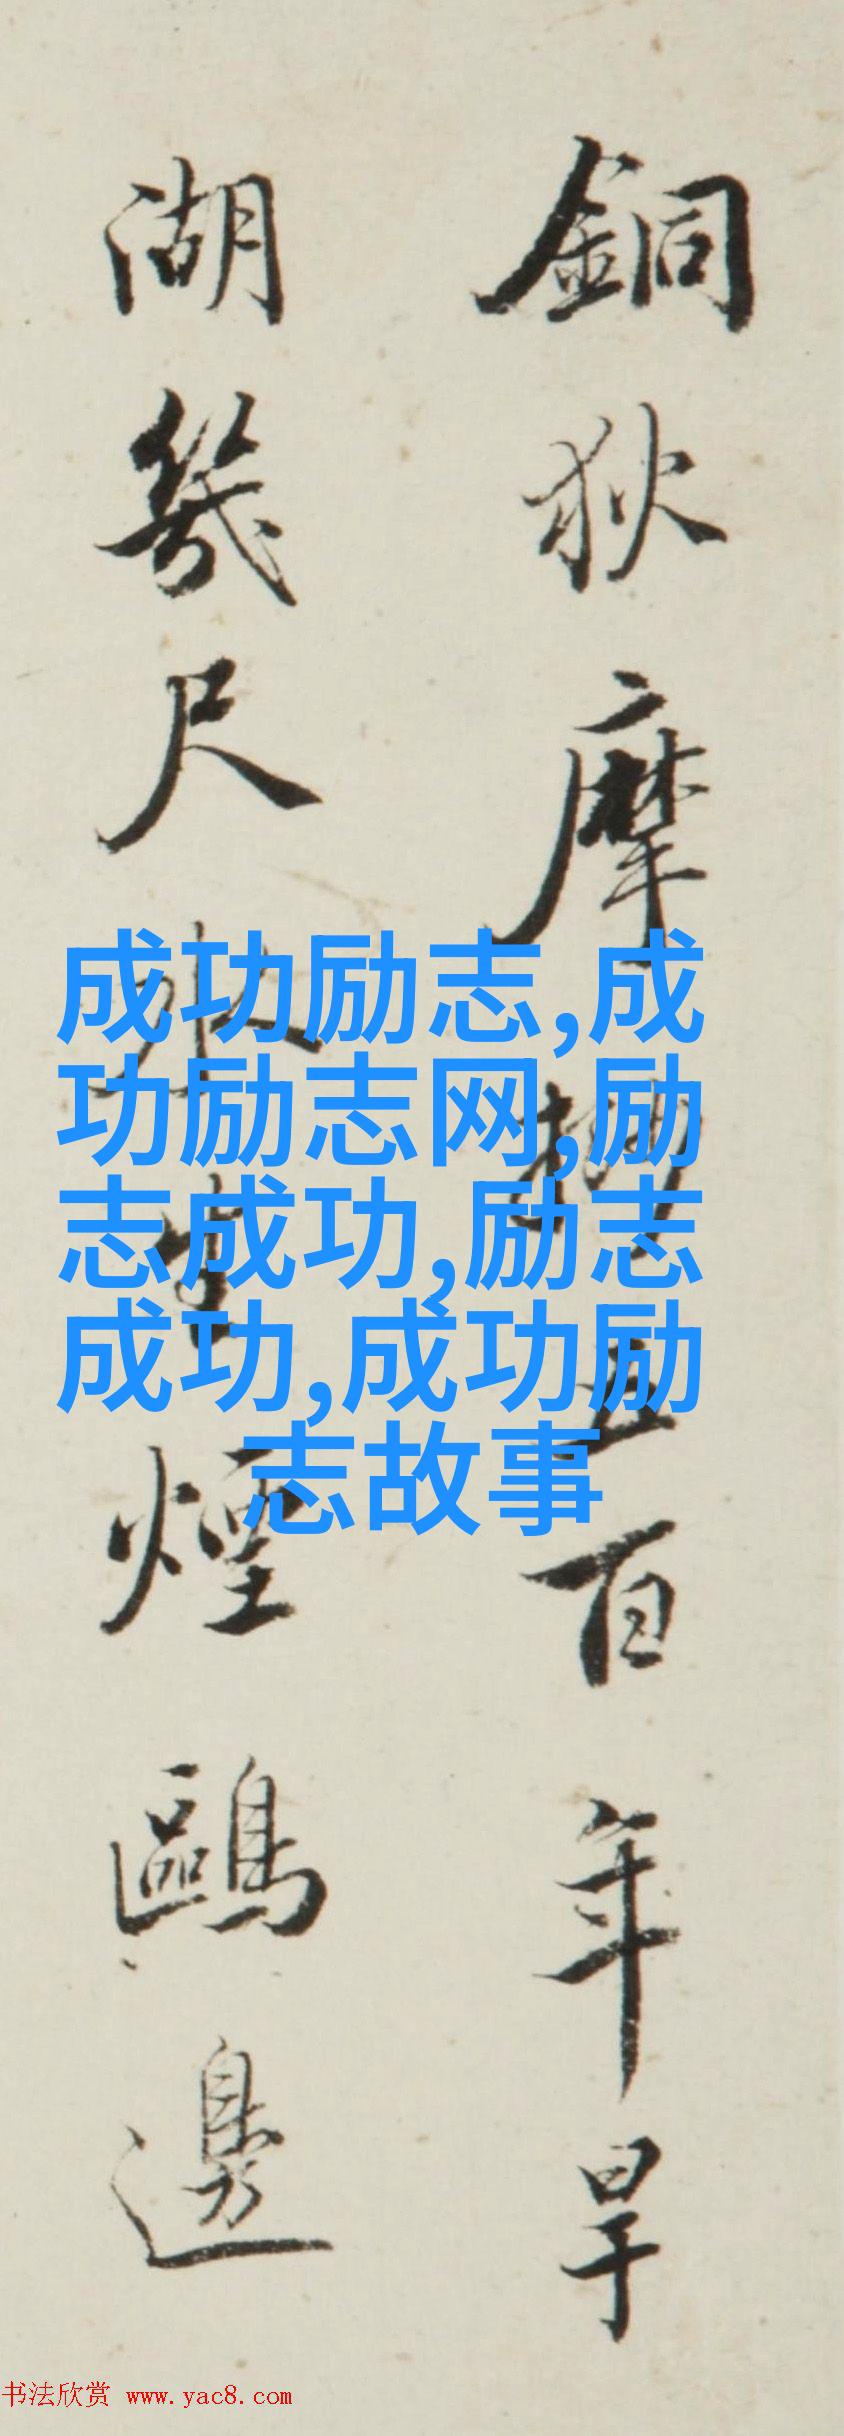 銅狄摩挲五百年旱
湖幾尺水生煙鷗邊
成功励志,成
功励志网,励
志成功,励志
成功,成功励
志故事
书法欣赏 www.yac8.com